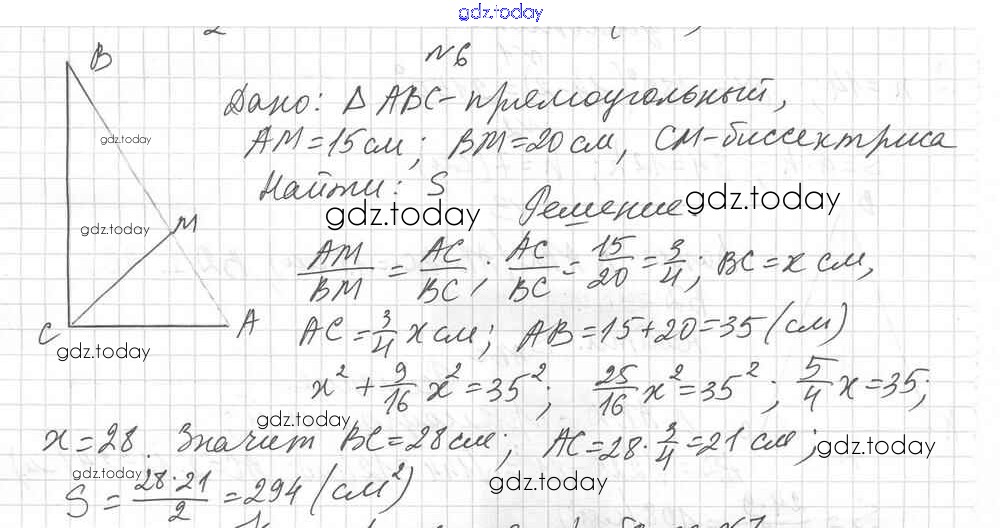 gdz.today
№6
B
Дано: Δ ABC - прямоугольный,
gdz.today
AM = 15 см; BM = 20 см, CM - биссектриса
Найти: S
gdz.today
Решение.
gdz.today
gdz.today
M
AM/BM = AC/BC; AC/BC = 15/20 = 3/4; BC = x см,
C
A
AC = 3/4 x см; AB = 15 + 20 = 35 (см)
gdz.today
x² + 9/16 x² = 35²; 25/16 x² = 35²; 5/4 x = 35;
gdz.today
x = 28. Значит BC = 28 см; AC = 28 · 3/4 = 21 см;
gdz.today
gdz.today
S = 28·21/2 = 294 (см²)
gdz.today